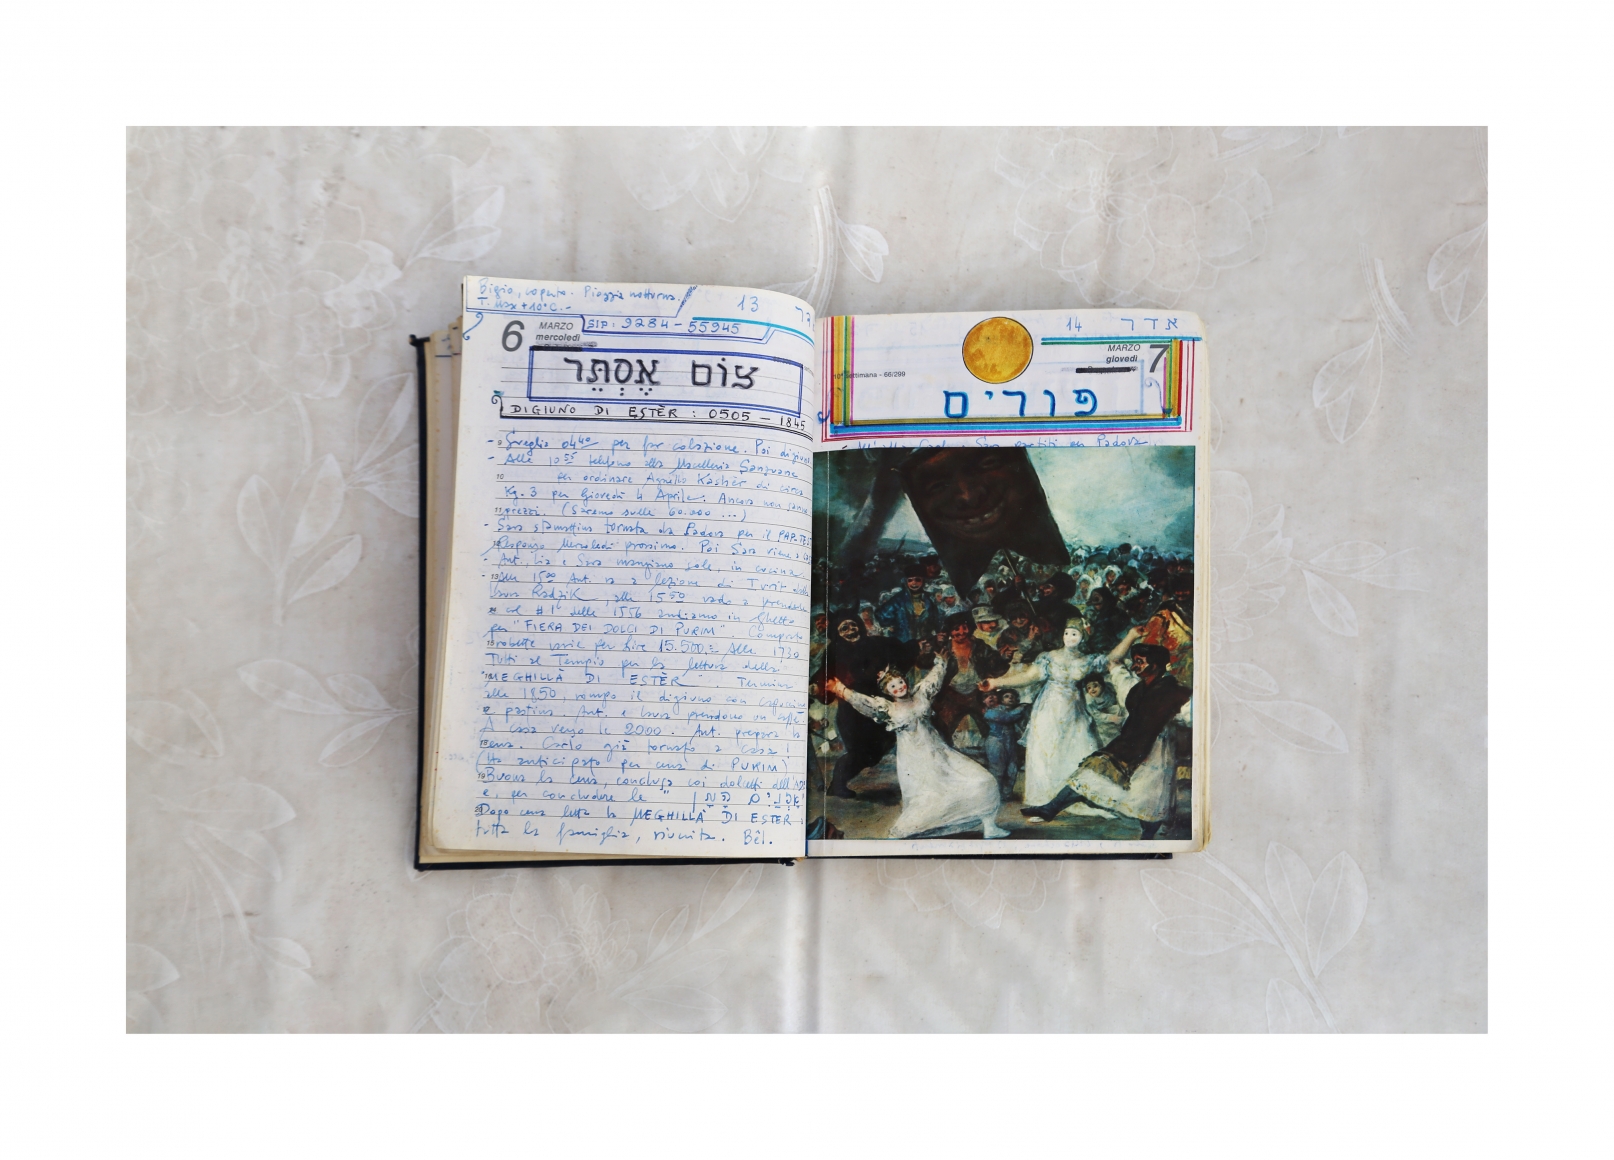 Bigio, coperto. Pioggia notturna.
T. Max +10°C.-
13
6
MARZO
mercoledì
SIP: 9284-55945
צוֹם אֶסְתֵּר
DIGIUNO DI ESTÈR: 0505 - 1845
- Sveglia 04 40 per far colazione. Poi digiuno
- Alle 10 55 telefono alla Macelleria
per ordinare Agnello Kashèr di circa
Kg. 3 per Giovedì 4 Aprile. Ancora non sanno
prezzi. (Saremo sulle 60.000 ...)
- Sara stamattina tornata da Padova per il PAP-TEST
Responso Mercoledì prossimo. Poi Sara viene a
- Ant., Lia e Sara mangiano sole, in cucina
- Alle 15 00 Ant. va a lezione di dalla
RadziK, alle 15 50 vado a prenderla
e col #1 delle 1556 andiamo in Ghetto
per "FIERA DEI DOLCI DI PURIM". Comprato
robette varie per lire 15.500.= Alle 1730
Tutti al Tempio per la lettura della
"MEGHILLÀ DI ESTÈR". Termina
alle 1850, rompo il digiuno con cappuccino
e pastina. Ant. e Laura prendono un caffè
A casa verso le 2000. Ant. prepara la
cena. Carlo già tornato a casa!
(Ha anticipato per cena di PURIM)
Buona la cena, conclusa coi dolcetti
e, per concludere le
Dopo cena letta la MEGHILLÀ DI ESTÈR
tutta la famiglia, riunita. Bèl.
14 אדר
MARZO
giovedì
7
10ª Settimana - 66/299
פורים
Sara partiti per Padova.